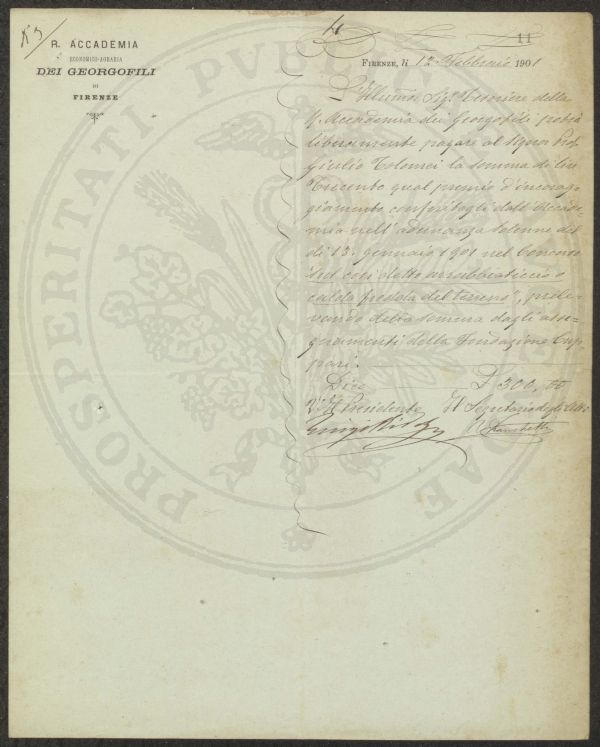 R. ACCADEMIA
ECONOMICO-AGRARIA
DEI GEORGOFILI
DI
FIRENZE
11
FIRENZE, li 12 Febbraio 1901
L'Illumo Sigr Tesoriere della
R. Accademia dei Georgofili potrà
liberamente pagare al Signor Prof.
Giulio Tolomei la somma di Lire
Trecento qual premio d'incorag-
giamento conferitogli dall'Accade-
mia nell'adunanza solenne del
dì 13. Gennaio 1901 nel Concorso
sul così detto arrabbiaticcio o
calda fredda del terreno", prele-
vando detta somma dagli asse-
gnamenti della Fondazione Cup-
pari.
Dice £ 300,00
Il Presidente Il Segretario degli Atti
PROSPERITATI PUBLICAE